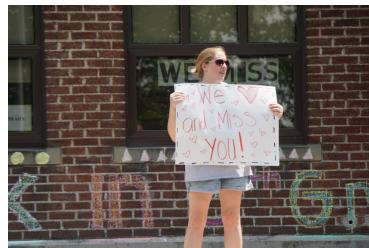 WE MISS
We ♡
and Miss
YOU!
K in G